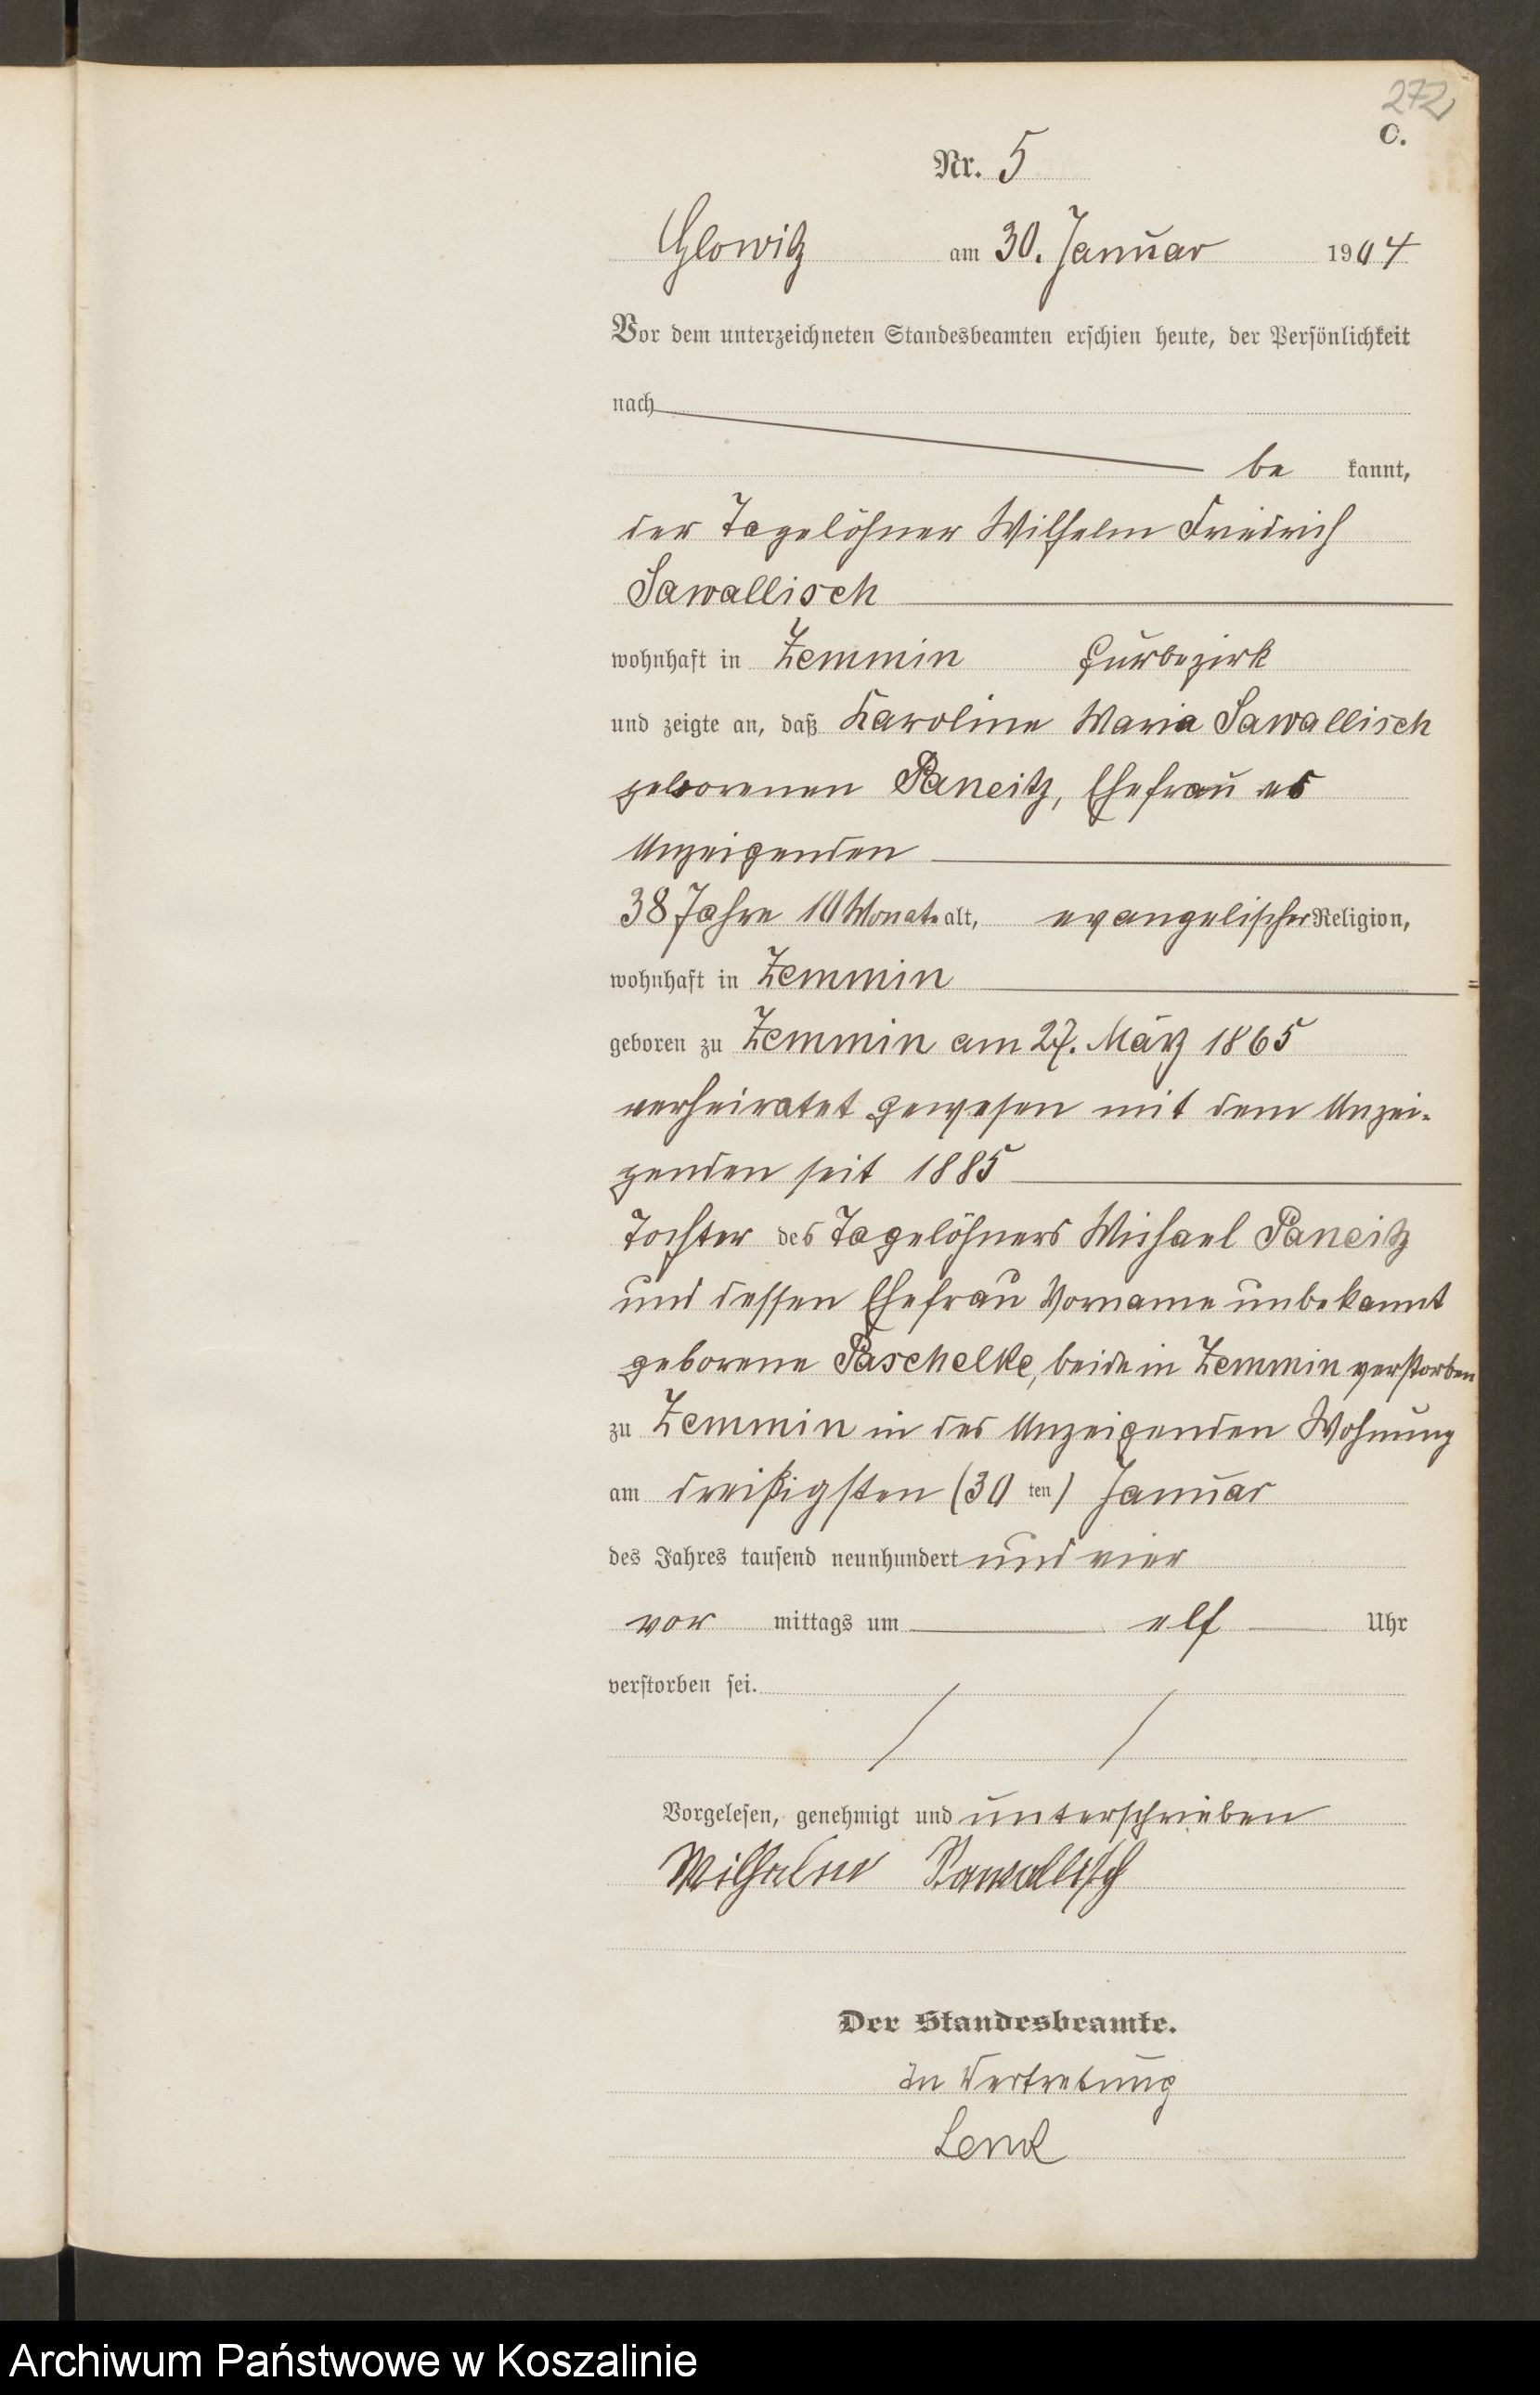 272
C.
Nr. 5
Glowitz am 30. Januar 1904
Vor dem unterzeichneten Standesbeamten erschien heute, der Persönlichkeit
nach
be kannt,
der Tagelöhner Wilhelm Friedrich
Sawallisch
wohnhaft in Zemmin Gutsbezirk
und zeigte an, daß Karoline Maria Sawallisch
geborenen Paneitz, Ehefrau des
Anzeigenden
38 Jahre 10 Monate alt, evangelischer Religion,
wohnhaft in Zemmin
geboren zu Zemmin am 27. März 1865
verheiratet gewesen mit dem Anzei-
genden seit 1885
Tochter des Tagelöhners Michael Paneitz
und dessen Ehefrau Vorname unbekannt
geborene Paschelke, beide in Zemmin verstorben
zu Zemmin in des Anzeigenden Wohnung
am dreißigsten (30 ten) Januar
des Jahres tausend neunhundert und vier
vor mittags um elf Uhr
verstorben sei.
Vorgelesen, genehmigt und unterschrieben
Wilhelm Sawallisch
Der Standesbeamte.
In Vertretung
Lenk
Archiwum Państwowe w Koszalinie